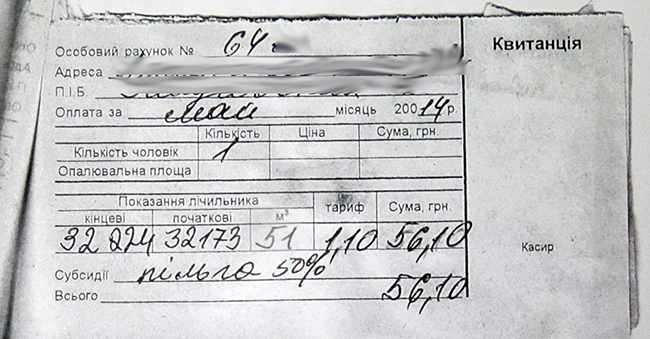 Квитанція
Особовий рахунок № 64
Адреса
П.І.Б.
Оплата за май місяць 200 14 р.
Кількість Ціна Сума, грн.
Кількість чоловік 1
Опалювальна площа
Показання лічильника тариф Сума, грн.
кінцеві початкові м³
32 224 32173 51 1,10 56,10
Касир
Субсидії пільга 50%
Всього 56,10